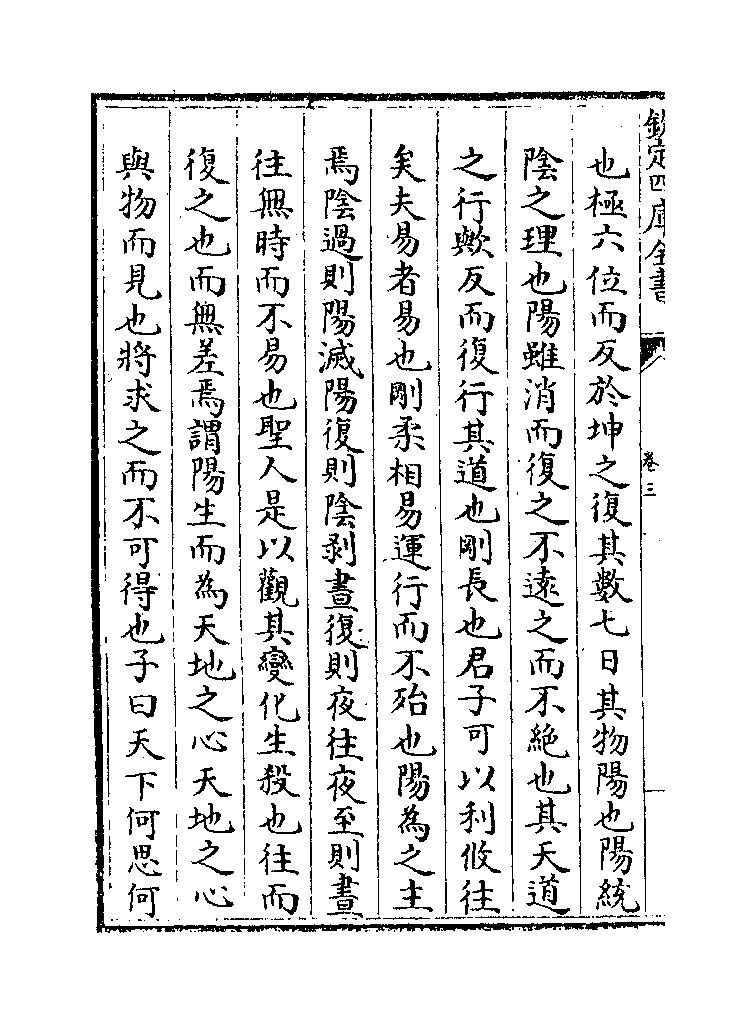 欽定四庫全書
卷三
也極六位而反於坤之復其數七日其物陽也陽統
陰之理也陽雖消而復之不遠之而不絶也其天道
之行歟反而復行其道也剛長也君子可以利攸往
矣夫易者易也剛柔相易運行而不殆也陽為之主
焉陰過則陽滅陽復則陰剥晝復則夜往夜至則晝
往無時而不易也聖人是以觀其變化生殺也往而
復之也而無差焉謂陽生而為天地之心天地之心
與物而見也將求之而不可得也子曰天下何思何